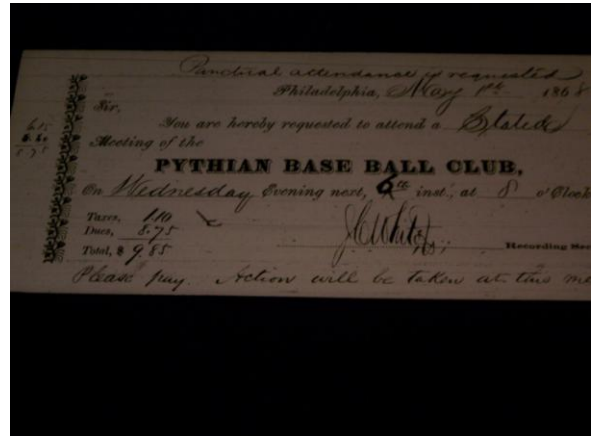 Punctual attendance is requested
Philadelphia, May 1st 1868
Sir,
You are hereby requested to attend a Stated
Meeting of the
PYTHIAN BASE BALL CLUB,
On Wednesday Evening next, 6th inst., at 8 o'Clock
Taxes, 1.10
Dues, 8.75
Total, $ 9.85
J C White Jr., Recording Sec
Please pay. Action will be taken at this me